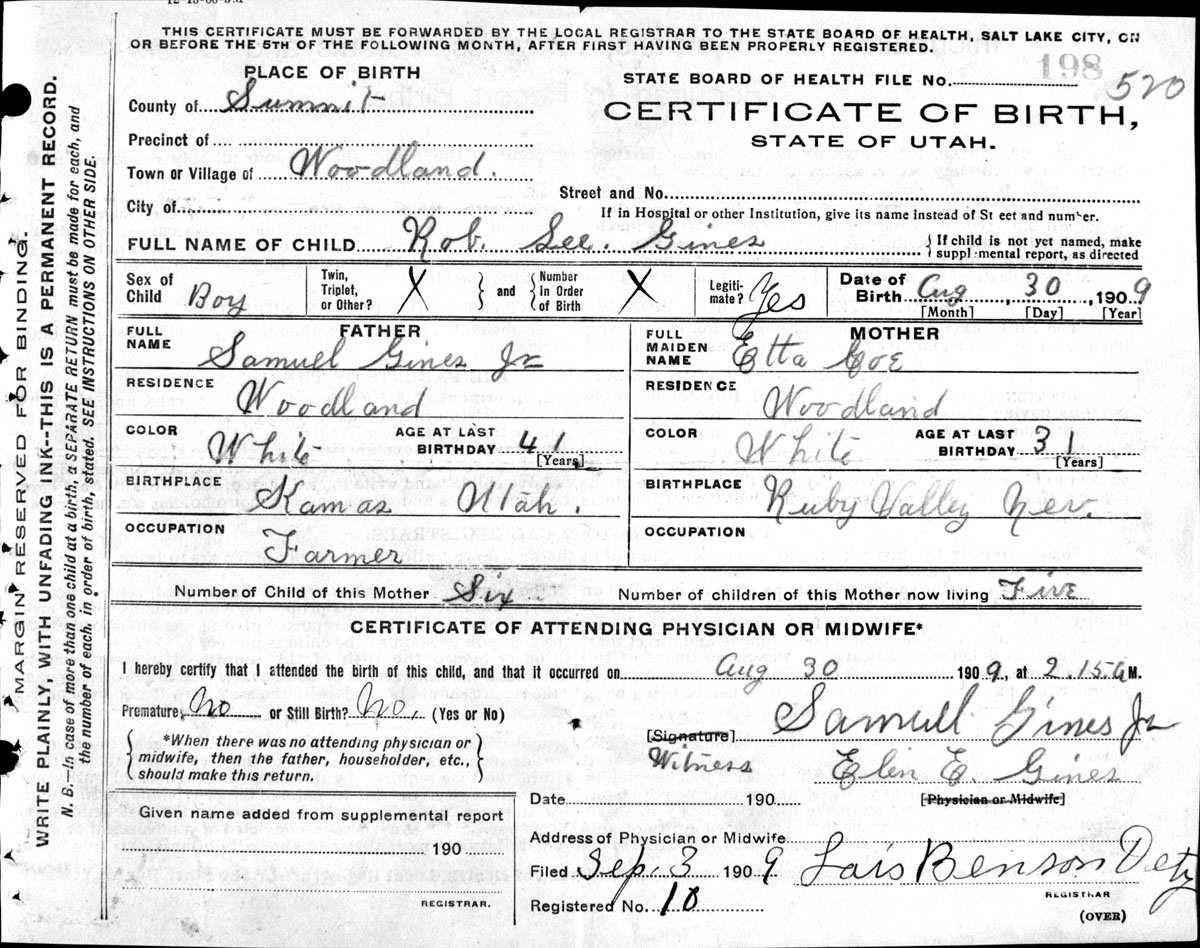 THIS CERTIFICATE MUST BE FORWARDED BY THE LOCAL REGISTRAR TO THE STATE BOARD OF HEALTH, SALT LAKE CITY, ON
OR BEFORE THE 5TH OF THE FOLLOWING MONTH, AFTER FIRST HAVING BEEN PROPERLY REGISTERED.
PLACE OF BIRTH
STATE BOARD OF HEALTH FILE No. 198 520
County of Summit
CERTIFICATE OF BIRTH,
STATE OF UTAH.
Precinct of
Town or Village of Woodland.
Street and No.
City of
If in Hospital or other Institution, give its name instead of St eet and number.
FULL NAME OF CHILD Rob. Lee. Gines
{If child is not yet named, make
supplemental report, as directed
Sex of Child Boy
Twin, Triplet, or Other? X
} and {
Number in Order of Birth X
Legiti-mate? Yes
Date of Birth Aug, 30, 1909
[Month] [Day] [Year]
FATHER
FULL NAME Samuel Gines Jr
RESIDENCE Woodland
COLOR White
AGE AT LAST BIRTHDAY 41
[Years]
BIRTHPLACE Kamas Utah.
OCCUPATION Farmer
MOTHER
FULL MAIDEN NAME Etta Coe
RESIDENCE Woodland
COLOR White
AGE AT LAST BIRTHDAY 31
[Years]
BIRTHPLACE Ruby Valley Nev.
OCCUPATION
Number of Child of this Mother Six
Number of children of this Mother now living Five
CERTIFICATE OF ATTENDING PHYSICIAN OR MIDWIFE*
I hereby certify that I attended the birth of this child, and that it occurred on Aug 30 1909, at 2.15 A M.
Premature, No or Still Birth? No, (Yes or No)
{*When there was no attending physician or
midwife, then the father, householder, etc.,
should make this return.
[Signature] Samuel Gines Jr
Witness Elen E Gines
[Physician or Midwife]
Date 190
Given name added from supplemental report
190
REGISTRAR.
Address of Physician or Midwife
Filed Sep. 3 1909 Lais Benson Dety
REGISTRAR
Registered No. 18
(OVER)
MARGIN RESERVED FOR BINDING.
WRITE PLAINLY WITH UNFADING INK--THIS IS A PERMANENT RECORD.
N. B.—In case of more than one child at a birth, a SEPARATE RETURN must be made for each, and
the number of each, in order of birth, stated. SEE INSTRUCTIONS ON OTHER SIDE.